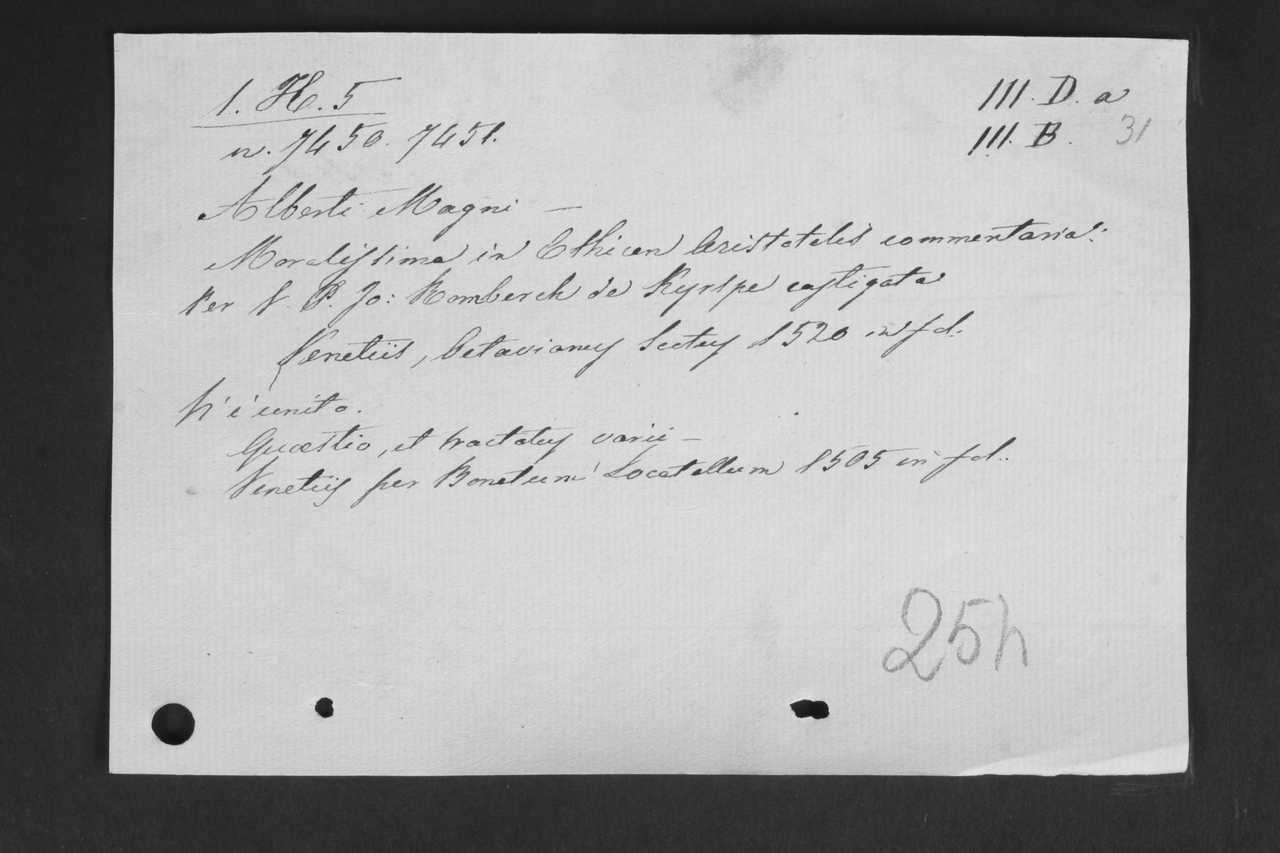 1. H. 5
III. D. a
n. 7450. 7451.
III. B. 31
Alberti Magni —
Moralissima in Ethicen Aristotelis commentaria:
Per F. P. Jo: Romberch de Kyrspe castigata
Venetiis, Octavianus Scotus 1520 in fol.
Vi è unito.
Quæstio, et tractatus varii —
Venetiis per Bonetum Locatellum 1505 in fol.
25h